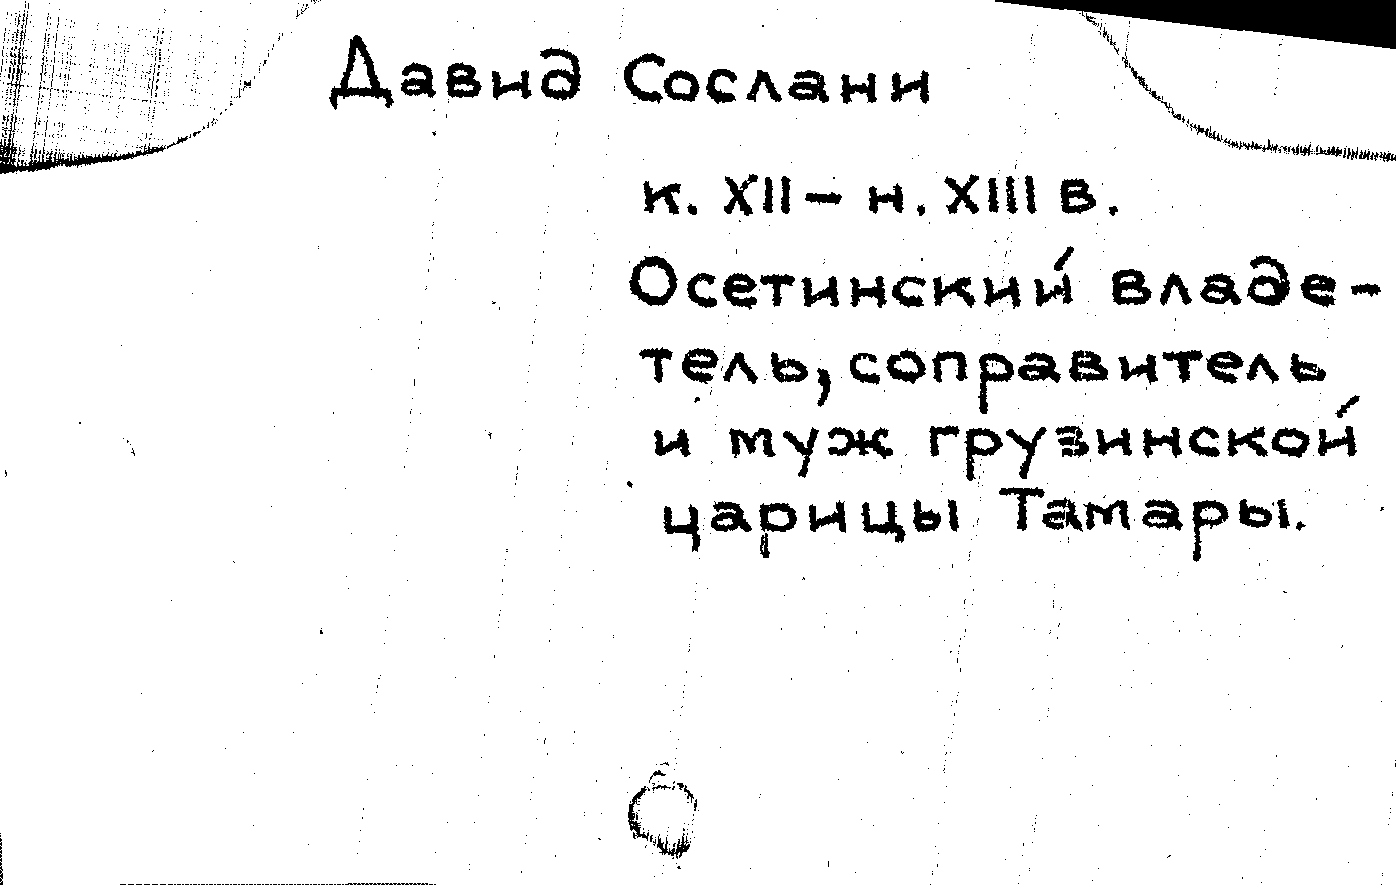 Давид Сослани
к. XII – н. XIII в.
Осетинский владе-
тель, соправитель
и муж грузинской
царицы Тамары.